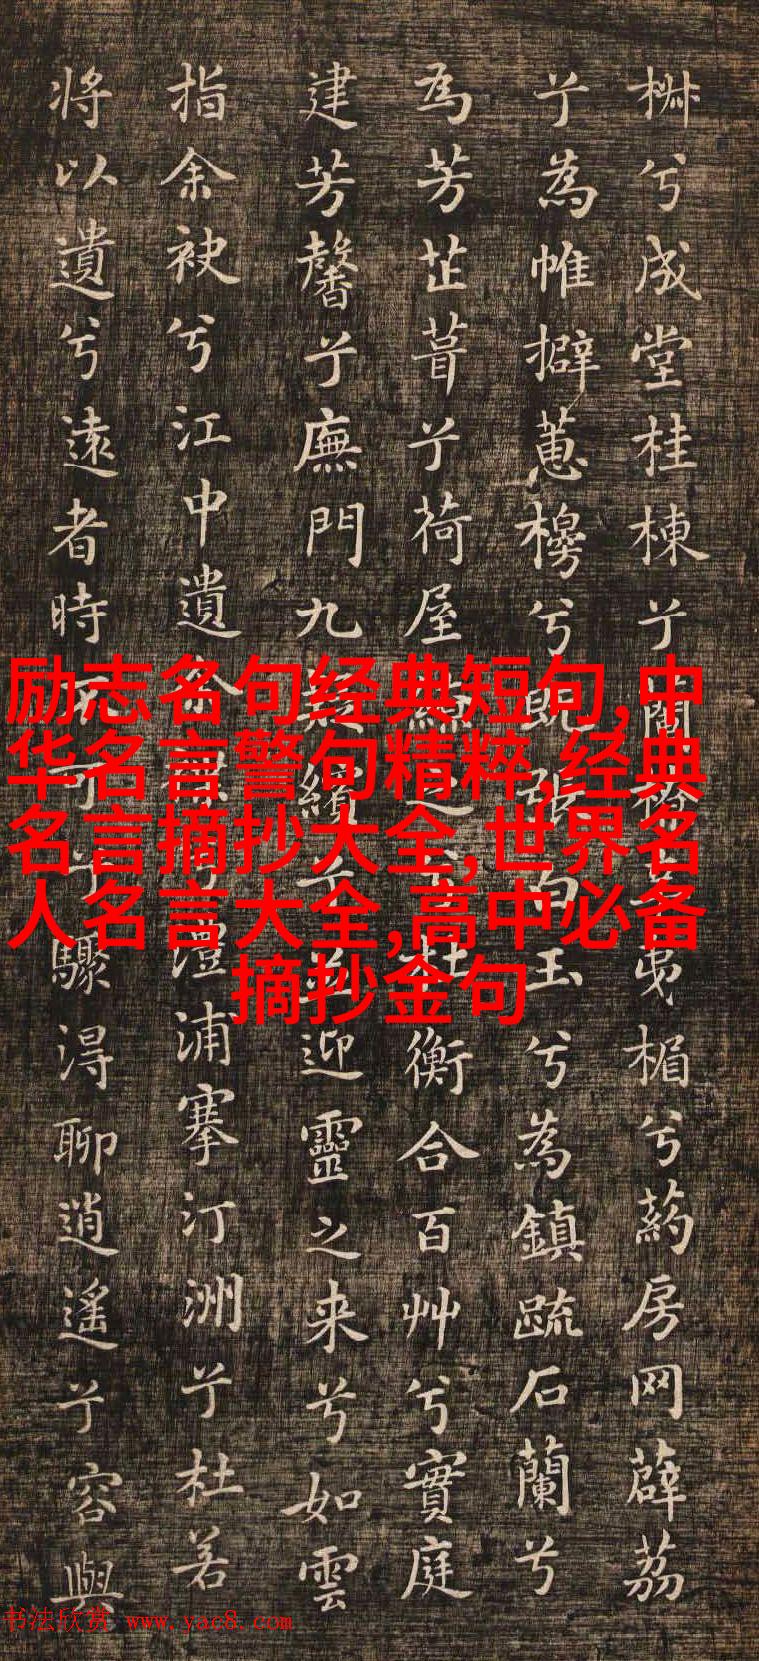 椒兮成堂桂棟兮橑辛夷楣兮葯房网薜荔
兮為帷擗蕙櫋兮既張白玉兮為鎮疏石蘭兮
為芳芷葺兮荷屋繚之兮杜衡合百艸兮實庭
建芳馨兮廡門九疑繽兮並迎靈之来兮如雲
指余袂兮江中遺余褋兮澧浦搴汀洲兮杜若
将以遺兮遠者時不可兮驟得聊逍遙兮容與
励志名句经典短句,中
华名言警句精粹,经典
名言摘抄大全,世界名
人名言大全,高中必备
摘抄金句
书法欣赏 www.yac8.com